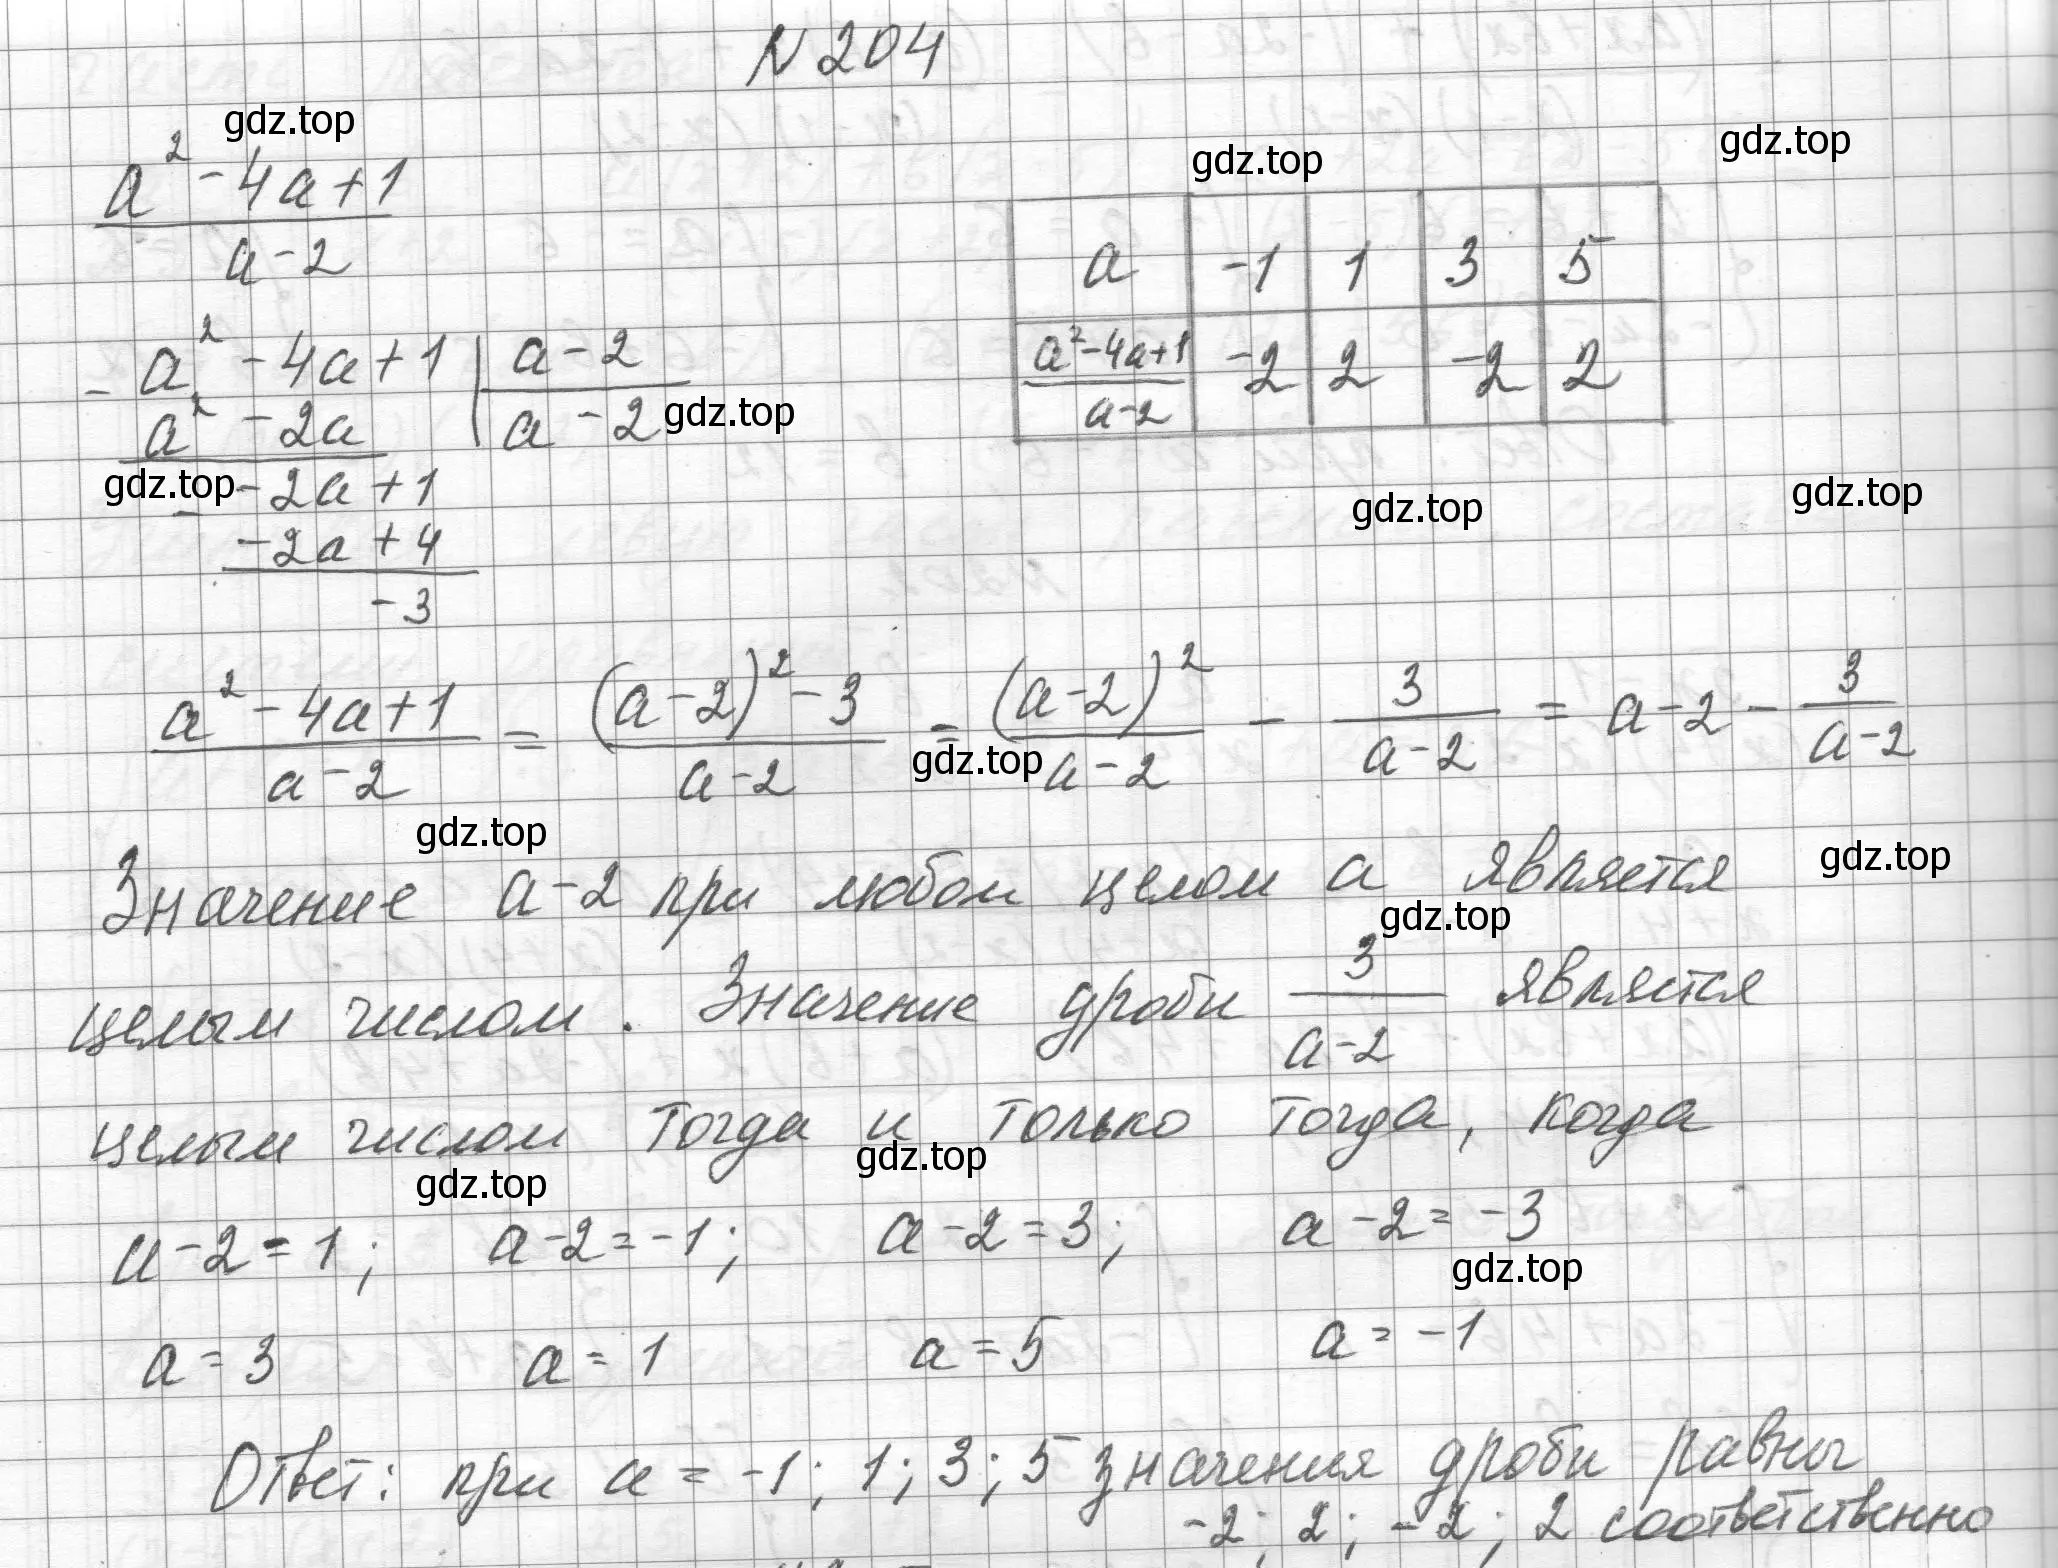 N 204
gdz.top
gdz.top
gdz.top
a² - 4a + 1
a - 2
a | -1 | 1 | 3 | 5
a² - 4a + 1 | a - 2
a² - 4a + 1 / a - 2 | -2 | 2 | -2 | 2
a² - 2a | a - 2 gdz.top
gdz.top - 2a + 1
gdz.top
gdz.top
- 2a + 4
- 3
(a² - 4a + 1)/(a - 2) = ((a - 2)² - 3)/(a - 2) = (a - 2)²/(a - 2) - 3/(a - 2) = a - 2 - 3/(a - 2)
gdz.top
gdz.top
gdz.top
Значение a - 2 при любом целом a является
gdz.top
целым числом. Значение дроби 3/(a - 2) является
целым числом тогда и только тогда, когда
gdz.top
gdz.top
a - 2 = 1; a - 2 = -1; a - 2 = 3; a - 2 = -3
gdz.top
a = 3 a = 1 a = 5 a = -1
Ответ: при a = -1; 1; 3; 5 значения дроби равны
-2; 2; -2; 2 соответственно